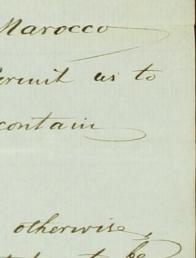 Marocco
permit us to
contain
otherwise,
to be